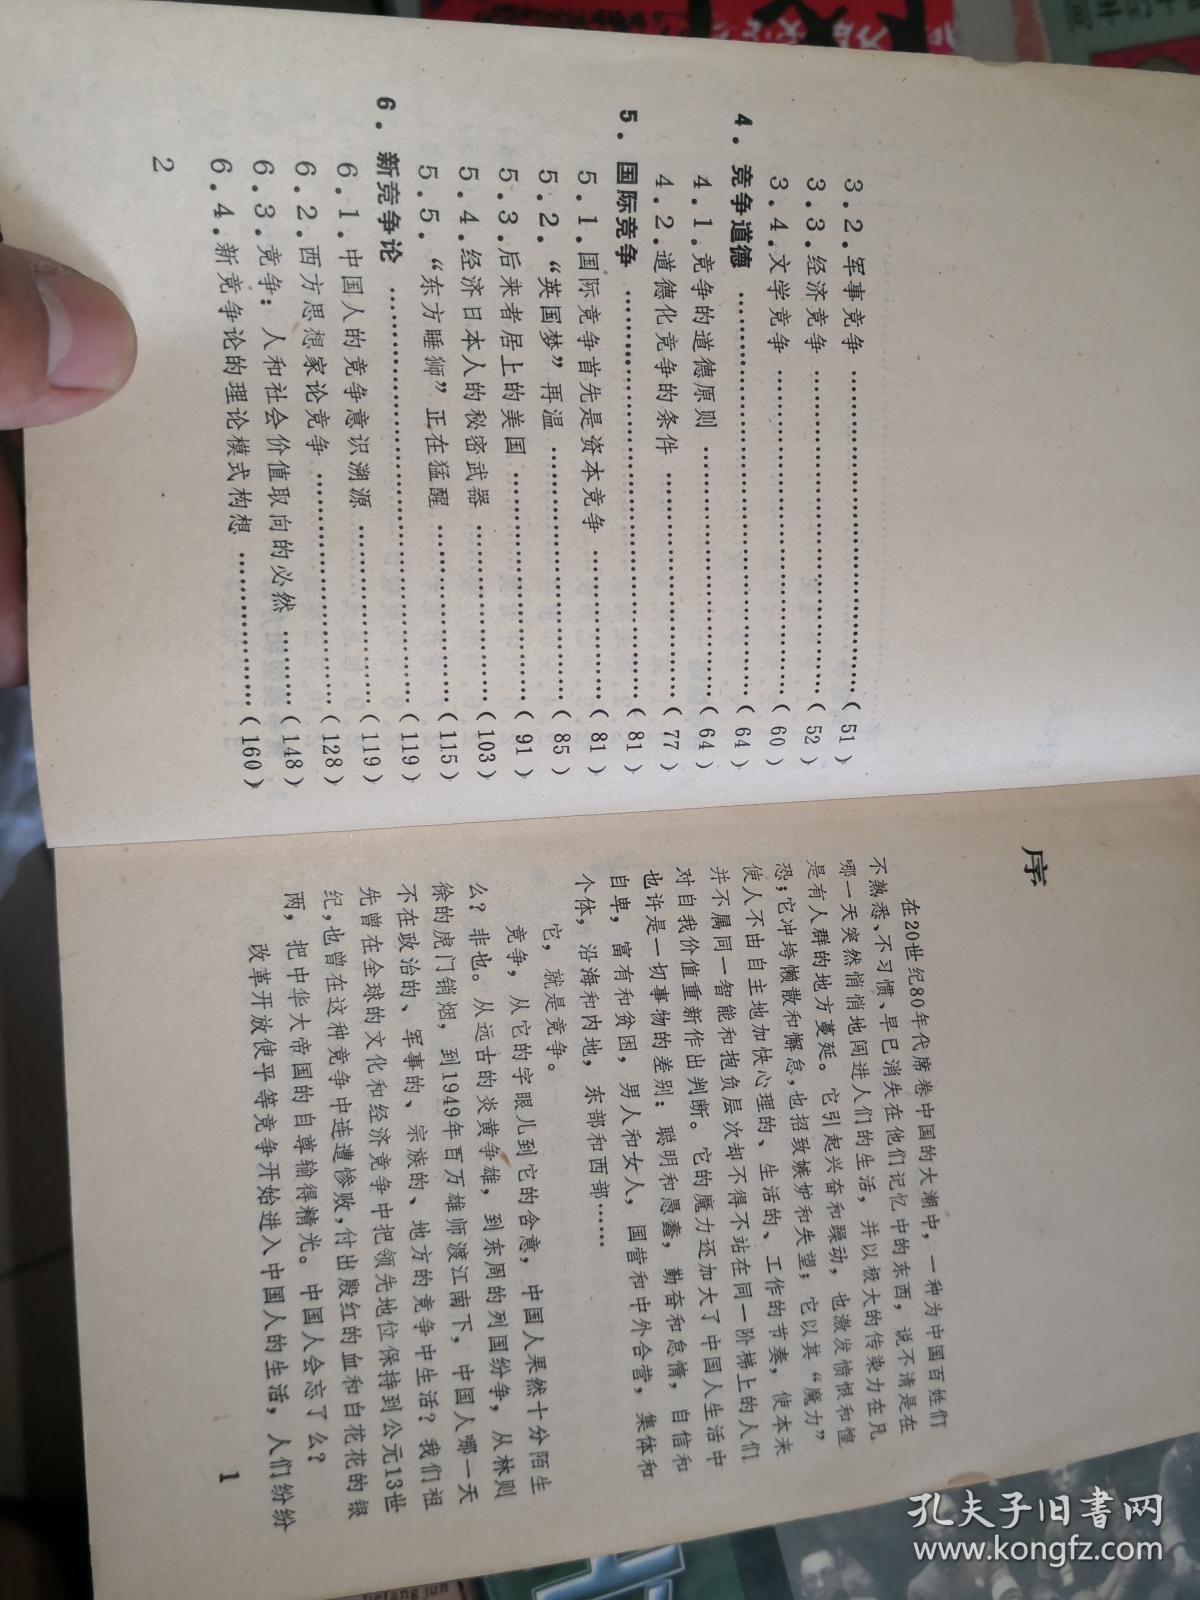 3.2.军事竞争……………………………(51)
3.3.经济竞争……………………………(52)
3.4.文学竞争……………………………(60)
4.竞争道德……………………………(64)
4.1.竞争的道德原则……………………(64)
4.2.道德化竞争的条件…………………(77)
5.国际竞争……………………………(81)
5.1.国际竞争首先是资本竞争…………(81)
5.2.“英国梦”再温……………………(85)
5.3.后来者居上的美国…………………(91)
5.4.经济日本人的秘密武器……………(103)
5.5.“东方睡狮”正在猛醒……………(115)
6.新竞争论……………………………(119)
6.1.中国人的竞争意识溯源……………(119)
6.2.西方思想家论竞争…………………(128)
6.3.竞争：人和社会价值取向的必然……(148)
6.4.新竞争论的理论模式构想…………(160)
2
序
在20世纪80年代席卷中国的大潮中，一种为中国百姓们
不熟悉、不习惯、早已消失在他们记忆中的东西，说不清是在
哪一天突然悄悄地闯进人们的生活，并以极大的传染力在凡
是有人群的地方蔓延。它引起兴奋和躁动，也激发愤恨和惶
恐；它冲垮懒散和懈怠，也招致嫉妒和失望；它以其“魔力”
使人不由自主地加快心理的、生活的、工作的节奏，使本来
并不属同一智能和抱负层次却不得不站在同一阶梯上的人们
对自我价值重新作出判断。它的魔力还加大了中国人生活中
也许是一切事物的差别：聪明和愚蠢，勤奋和怠惰，自信和
自卑，富有和贫困，男人和女人，国营和中外合营，集体和
个体，沿海和内地，东部和西部……
它，就是竞争。
竞争，从它的字眼儿到它的含意，中国人果然十分陌生
么？非也。从远古的炎黄争雄，到东周的列国纷争，从林则
徐的虎门销烟，到1949年百万雄师渡江南下，中国人哪一天
不在政治的、军事的、宗族的、地方的竞争中生活？我们祖
先曾在全球的文化和经济竞争中把领先地位保持到公元13世
纪，也曾在这种竞争中连遭惨败，付出殷红的血和白花花的银
两，把中华大帝国的自尊输得精光。中国人会忘了么？
改革开放使平等竞争开始进入中国人的生活，人们纷纷
1
孔夫子旧书网
www.kongfz.com